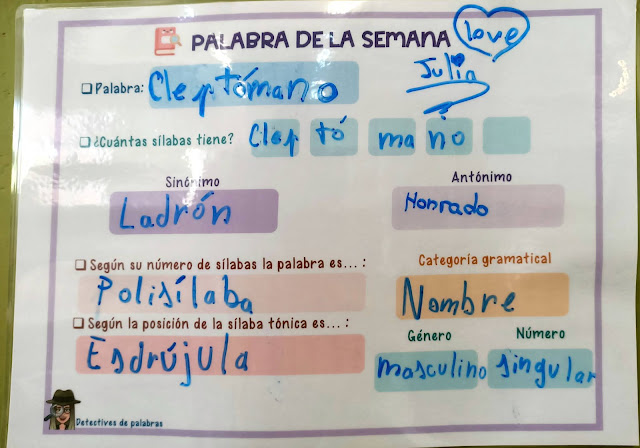 PALABRA DE LA SEMANA love
Julia
Palabra: Cleptómano
¿Cuántas sílabas tiene? Clep tó ma no
Sinónimo Antónimo
Ladrón Honrado
Según su número de sílabas la palabra es... : Categoría gramatical
Polisílaba Nombre
Según la posición de la sílaba tónica es... :
Esdrújula
Género Número
masculino singular
Detectives de palabras